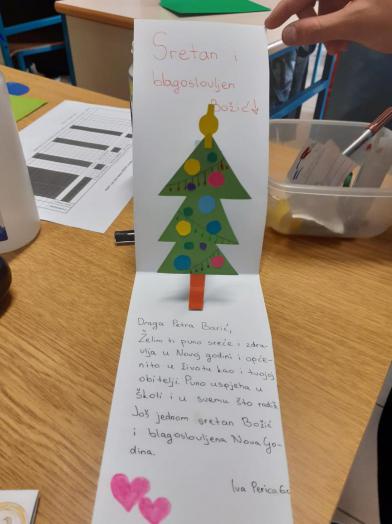 Sretan i
blagoslovljen
Božić
Draga Petra Barić,
Želim ti puno sreće i zdra-
vlja u Novoj godini i opće-
nito u životu kao i tvojoj
obitelji. Puno uspjeha u
školi i u svemu što radiš
Još jednom sretan Božić
i blagoslovljena Nova Go-
dina.
Iva Perica 6c